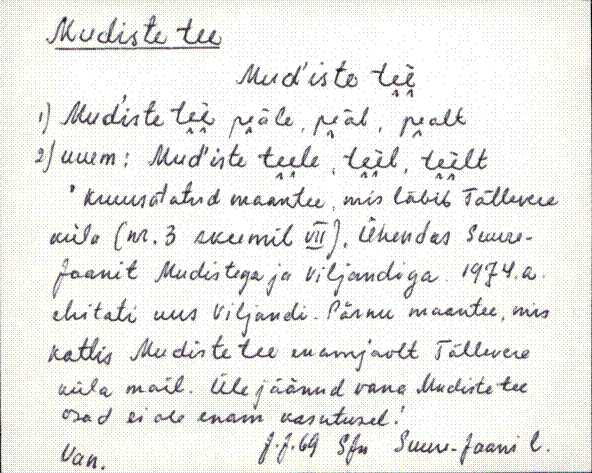 Mudiste tee
Mud'iste tèè
1) Mud'iste tèè peäle, peäl, pealt
2) uuem: Mud'iste teele, tèèl, tèèlt
kruusatatud maantee, mis läbib Tällevere
küla (nr. 3 skeemil VII), ühendas Suure-
Jaanit Mudistega ja Viljandiga. 1974. a.
ehitati uus Viljandi-Pärnu maantee, mis
katlis Mudiste tee enamjaolt Tällevere
küla mail. Ülejäänud vana Mudiste tee
osad ei ole enam kasutusel.
Van. J.J.69 SJn Suure-Jaani l.